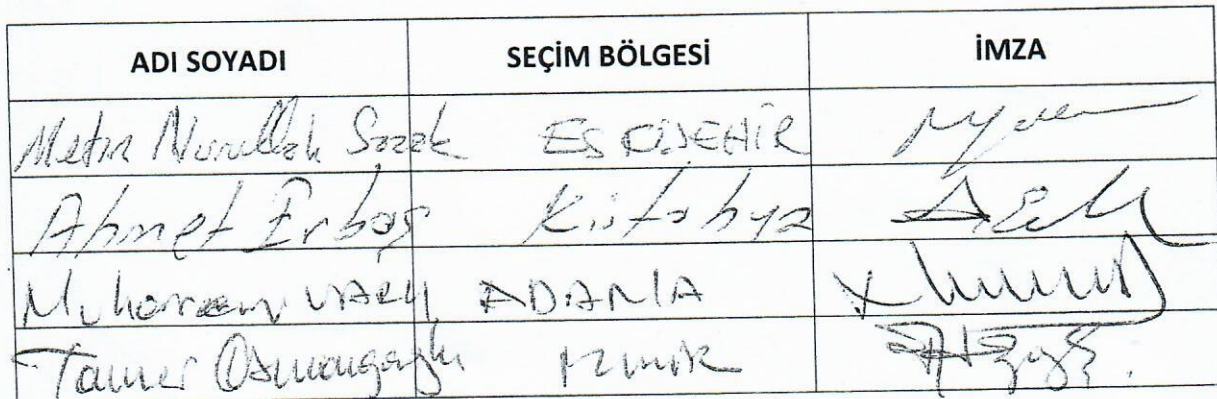 ADI SOYADI SEÇİM BÖLGESİ İMZA
Metin Nurullah Sazak ESKİŞEHİR
Ahmet Erbaş Kütahya
Muharrem VARLI ADANA
Tamer Osmanağaoğlu İzmir